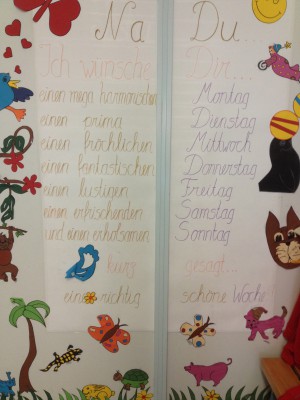 Na Du...
Ich wünsche Dir...
einen mega harmonischen Montag
einen prima Dienstag
einen fröhlichen Mittwoch
einen fantastischen Donnerstag
einen lustigen Freitag
einen erfrischenden Samstag
und einen erholsamen Sonntag
kurz gesagt...
eine richtig schöne Woche